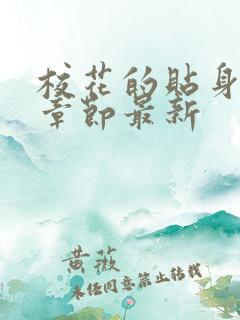 校花的贴身
章节最新
黄薇
未经同意禁止转载